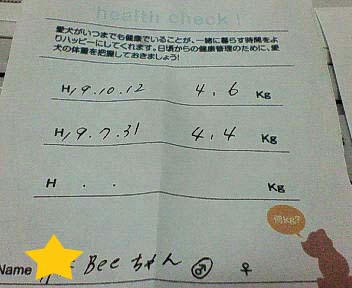 health check!
愛犬がいつまでも健康でいることが、一緒に暮らす時間をよ
りハッピーにしてくれます。日頃からの健康管理のために、愛
犬の体重を把握しておきましょう!
H19.10.12 4.6 Kg
H19.7.31 4.4 Kg
H . . Kg
何KG?
Name Beeちゃん ♂ ♀